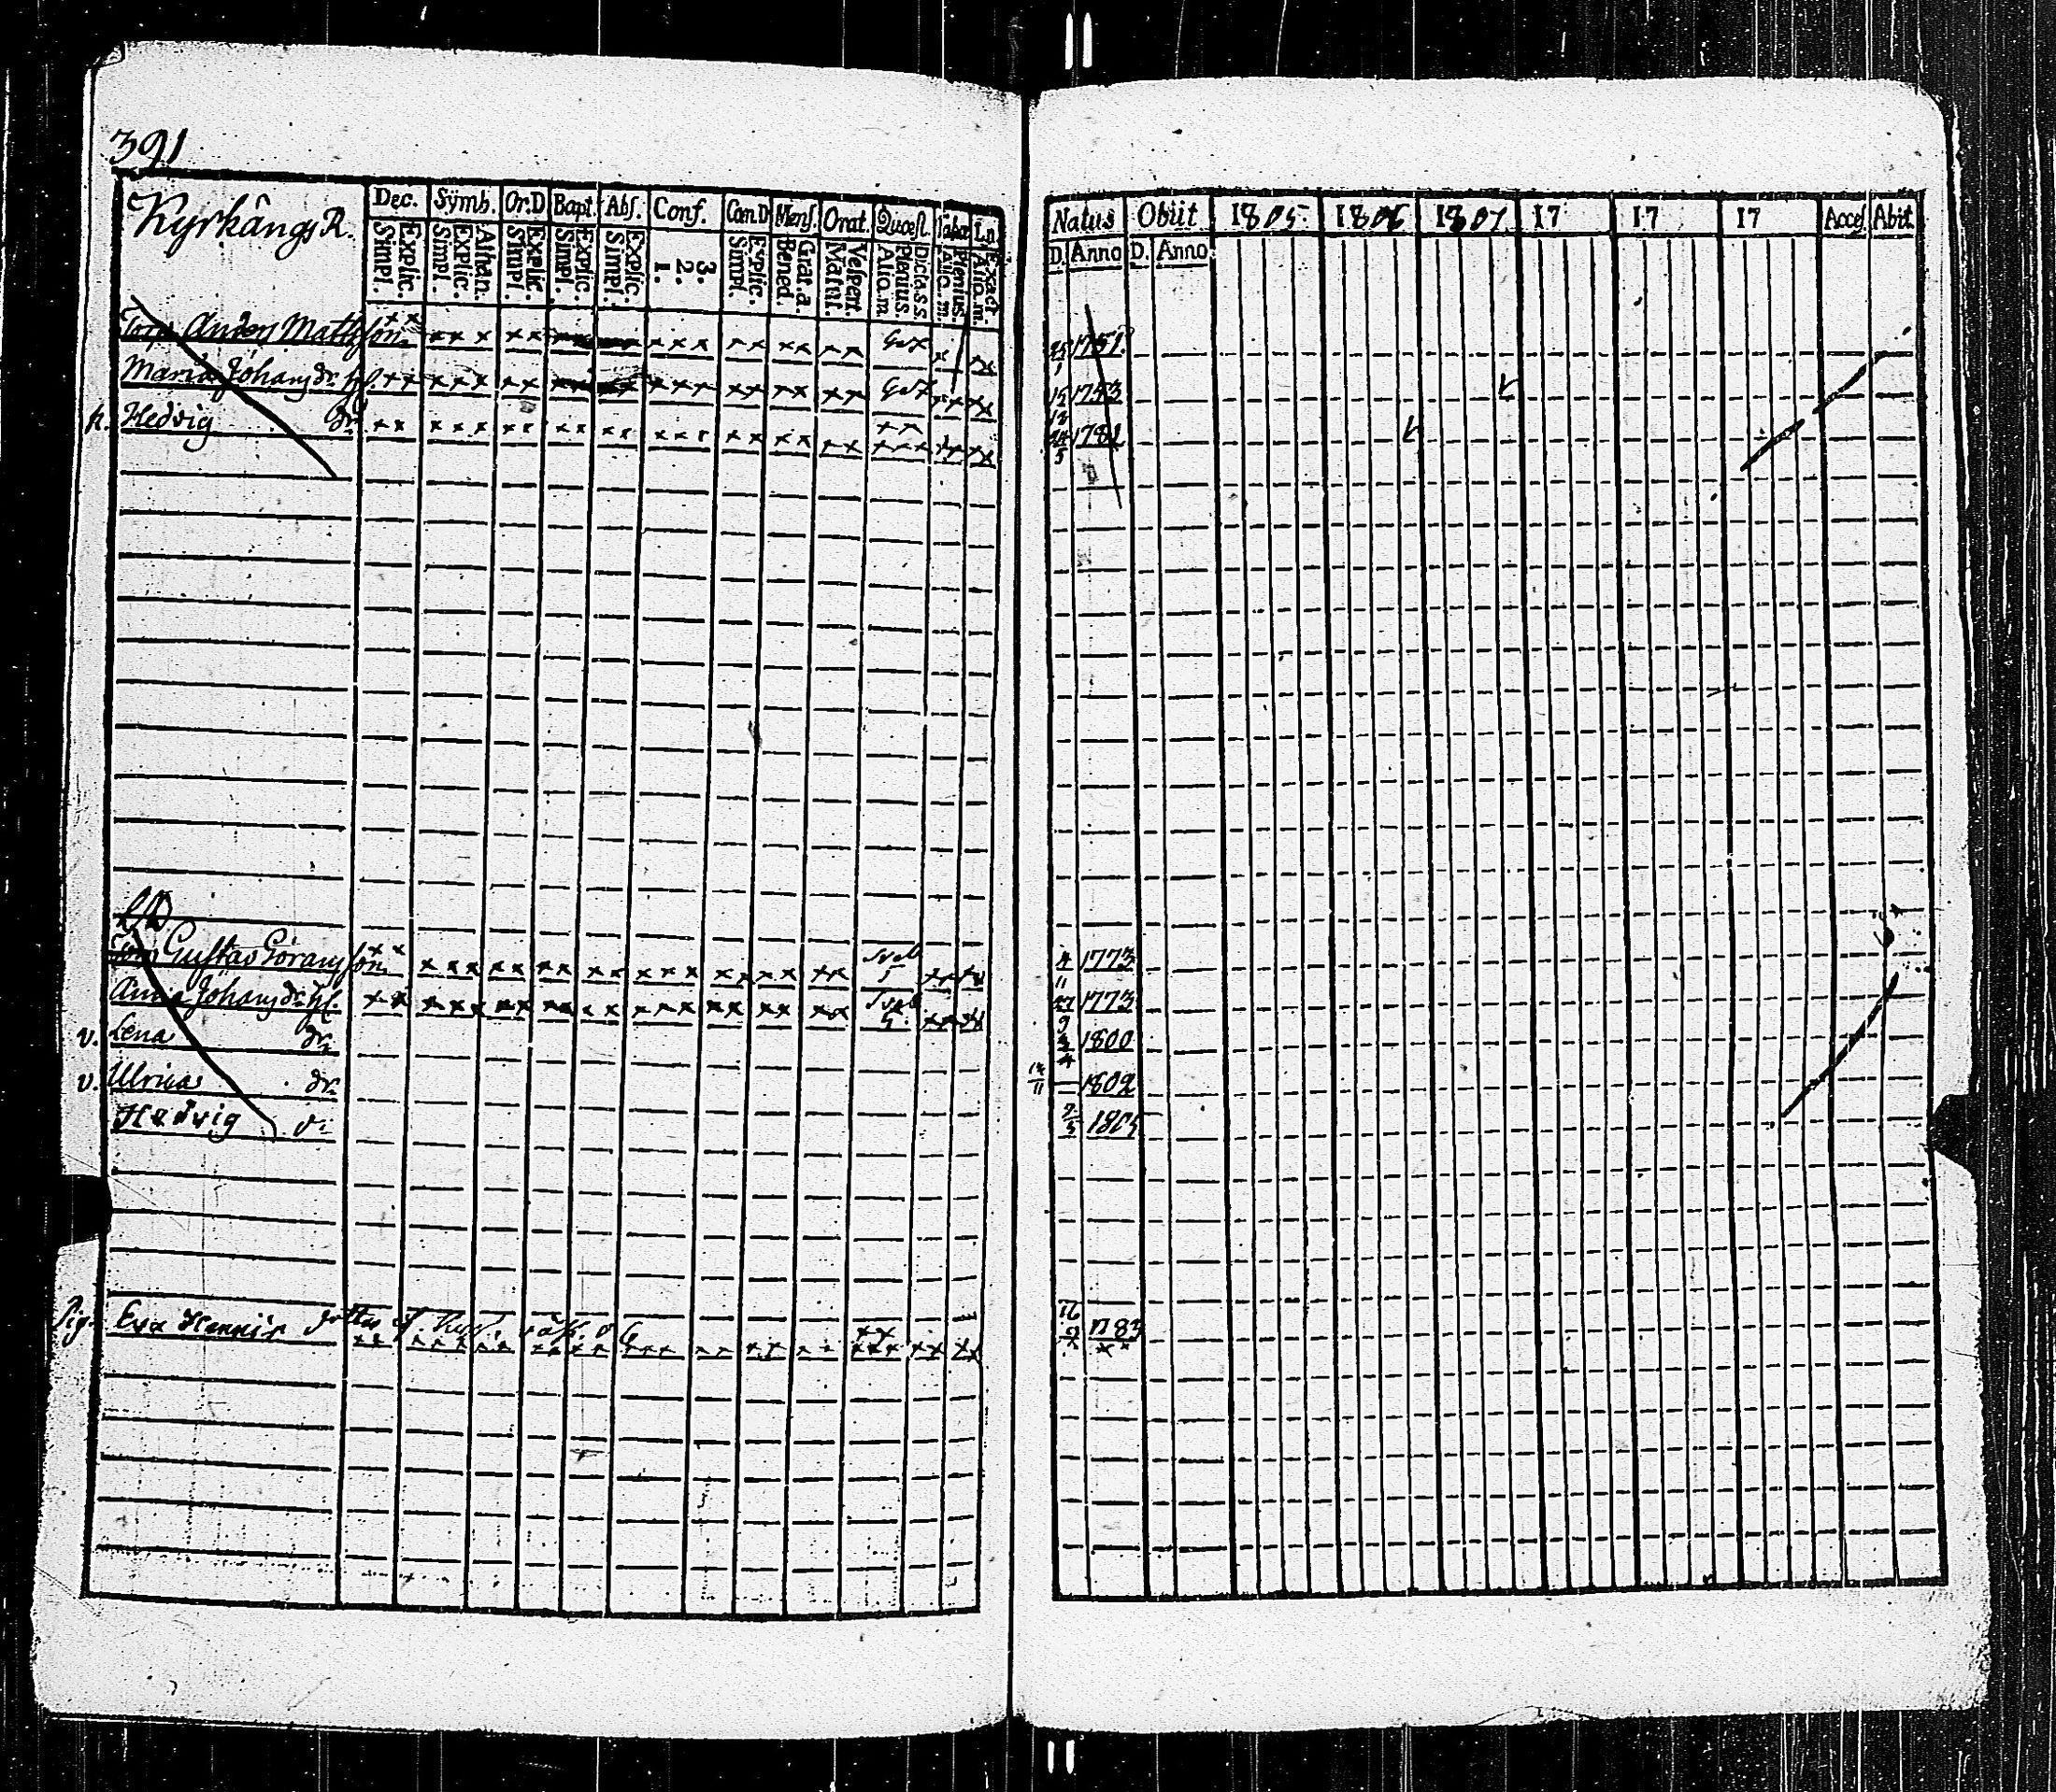 391
Kyrkängs R.
Dec. Symb. Or.D Bapt. Abs. Conf. Cœn.D Mens. Orat. Quæst. Tabu Ln.
Simpl. Explic. Simpl. Explic. Athan. Simpl. Explic. Simpl. Explic. Simpl. Explic. 1. 2. 3. Simpl. Explic. Bened. Grat. a. Matut. Vespert. Aliq. m. Plenius. Dicta s.s. Aliq. m. Plenius. Aliq. m. Exact.
Torp. Anders Mattsson
Maria Johans dr. h.
Hedvig dr.
Torp. Gustav Göransson
Anna Johans dr. h.
v. Lena dr.
v. Ulrica dr.
Hedvig d:
Pig. Eva Henrics dotter
Natus Obiit 1805. 1806 1807 17 17 17 Acces Abit.
D. Anno D. Anno
25/1 1751
15/12 1753
24/5 1781
4/11 1773
27/9 1773
1800
12/11 1802
9/5 1805
16/2 1783